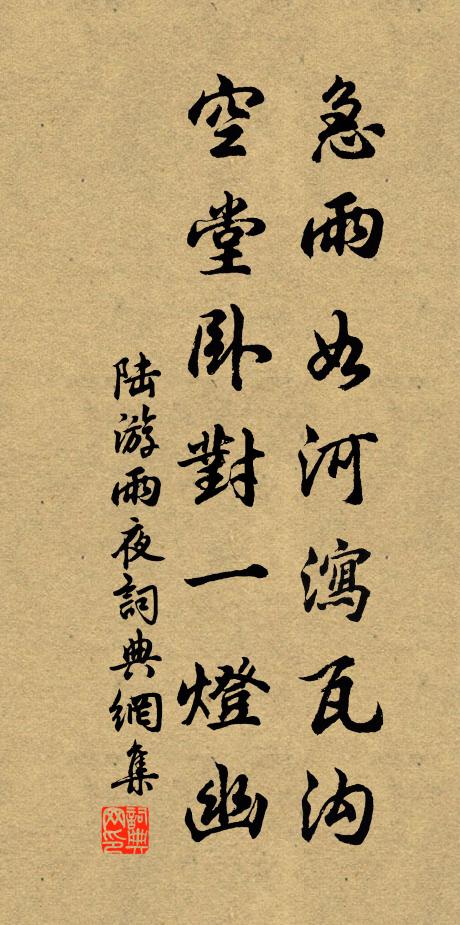 急雨如河瀉瓦沟
空堂卧對一燈幽
陆游雨夜詞典網集
詞典网印